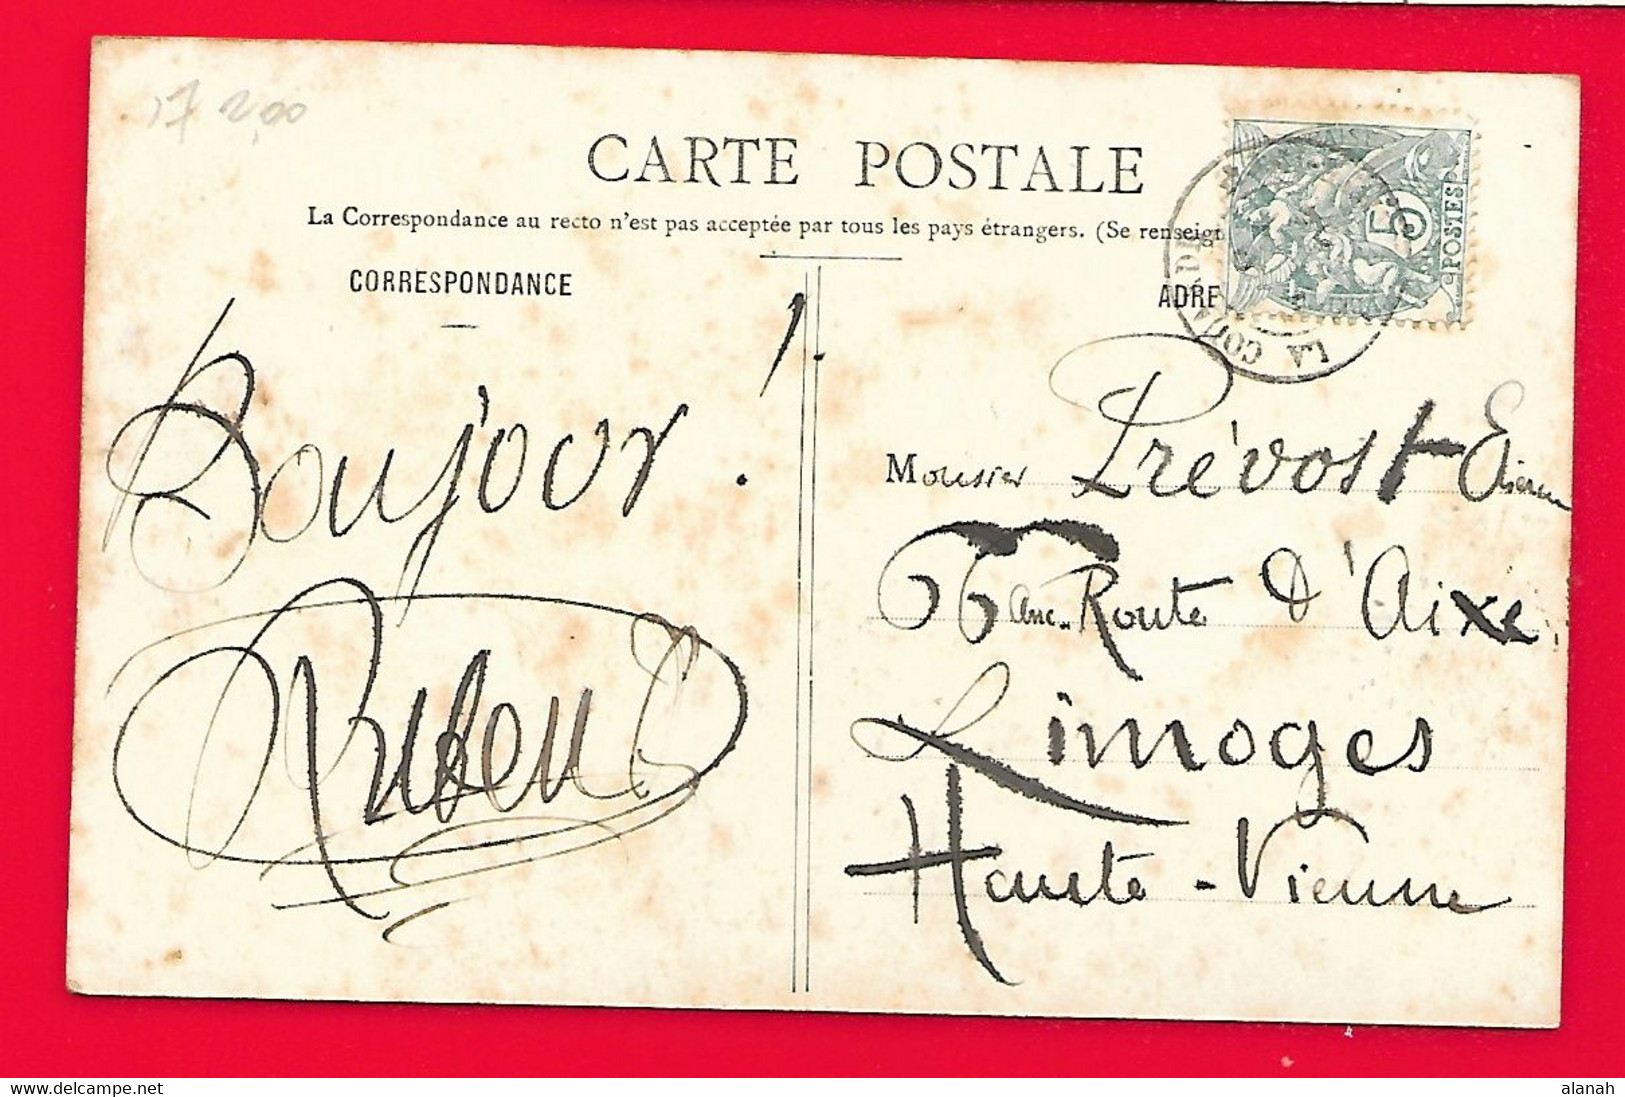 17 2,00
CARTE POSTALE
La Correspondance au recto n'est pas acceptée par tous les pays étrangers. (Se renseign
CORRESPONDANCE
ADRE
5
POSTES
LA COU DE
Bonjour !
Ruben
Monsier Prévost
66 anc. Route d'Aixe
Limoges
Haute-Vienne
alanah